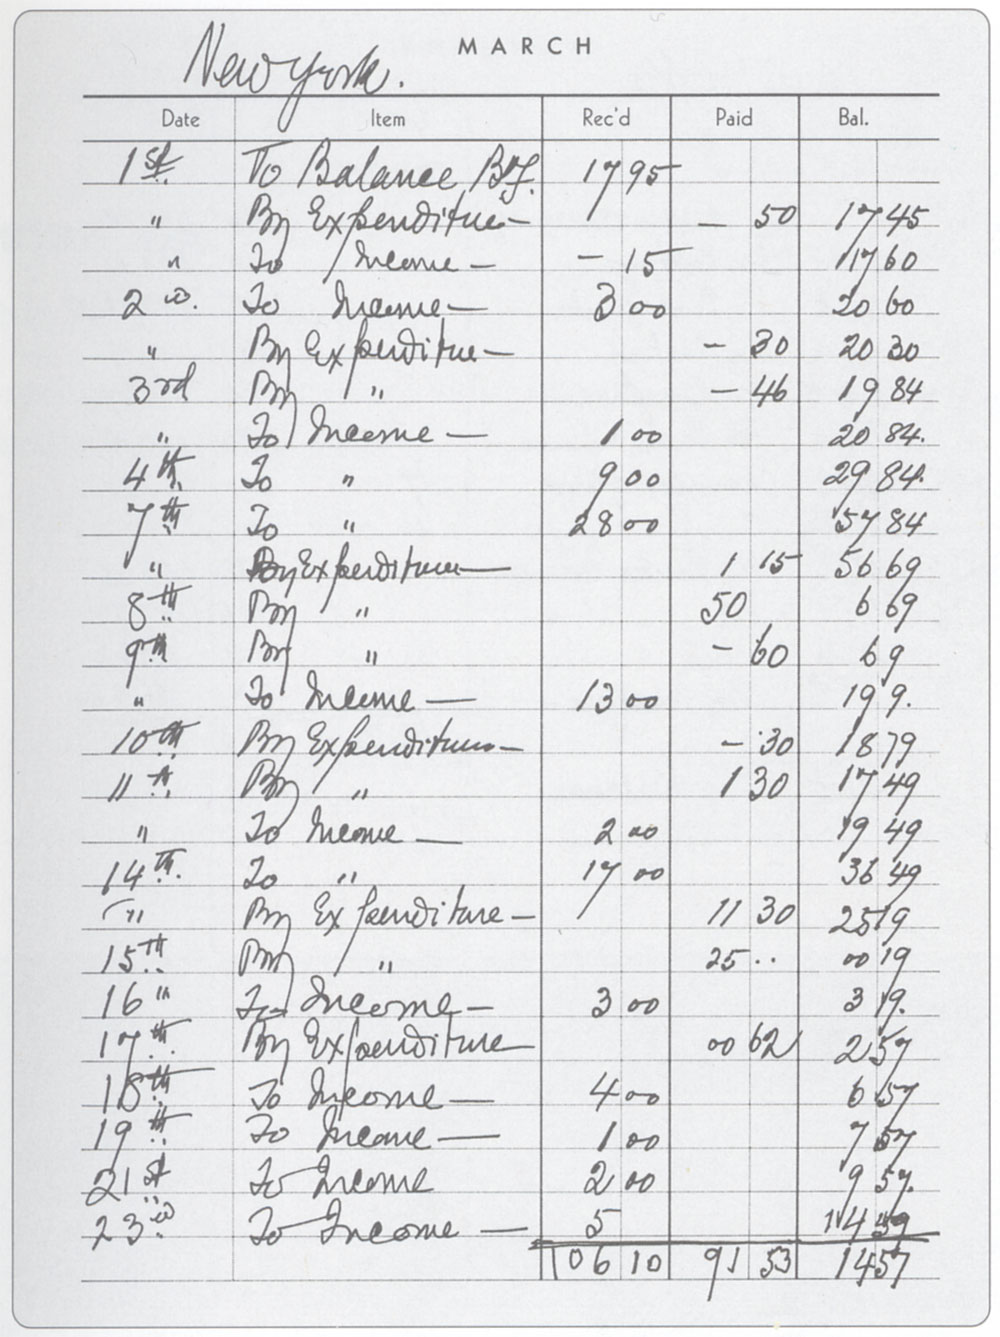 MARCH
New York.
Date Item Rec'd Paid Bal.
1st. To Balance B/f. 17 95
" By Expenditure - — 50 17 45
" To Income — - 15 17 60
2nd. To Income — 3 00 20 60
" By Expenditure — - 30 20 30
3rd By " - 46 19 84
" To Income — 1 00 20 84.
4th. To " 9 00 29 84.
7th To " 28 00 57 84
" By Expenditure — 1 15 56 69
8th By " 50 6 69
9th By " - 60 6 9
" To Income — 13 00 19 9.
10th By Expenditure — - 30 18 79
11th. By " 1 30 17 49
" To Income — 2 00 19 49
14th. To " 17 00 36 49
" By Expenditure — 11 30 25 19
15th By " 25 .. 00 19
16 " To Income — 3 00 3 19.
17th. By Expenditure 00 62 2 57
18th To Income — 4 00 6 57
19th To Income — 1 00 7 57
21st To Income 2 00 9 57.
23rd To Income — 5 14 59
106 10 91 53 14 57